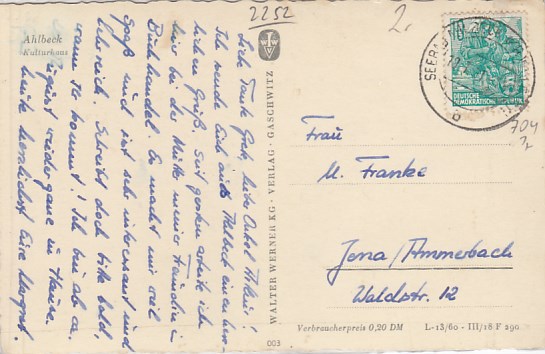 Ahlbeck
Kulturhaus
2252
2.
Liebe Tante Grete, lieber Onkel
Ich sende Euch aus Ahlbeck einen
lichen Gruß. Seit gestern arbeite ich
hier bei der Mutti meiner Freundin
Buchhandel. Es macht mir viel
Spaß und ist sehr interessant und
lehrreich. Schreibt doch bitte bald,
wann Ihr kommt! Ich bin ab ca.
wieder ganz in Hause.
Eure Margret.
WALTER WERNER KG · VERLAG · GASCHWITZ
003
SEEBAD
10
DEUTSCHE
DEMOKRATISCHE REPUBLIK
b
704
Frau
M. Franke
Jena/Ammerbach
Waldstr. 12
Verbraucherpreis 0,20 DM L-13/60 - III/18 F 290